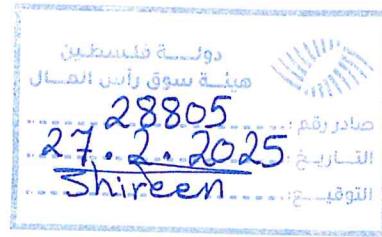 دولة فلسطين
هيئة سوق رأس المال
صادر رقم: 28805
التاريخ: 27.2.2025
التوقيع: Shireen